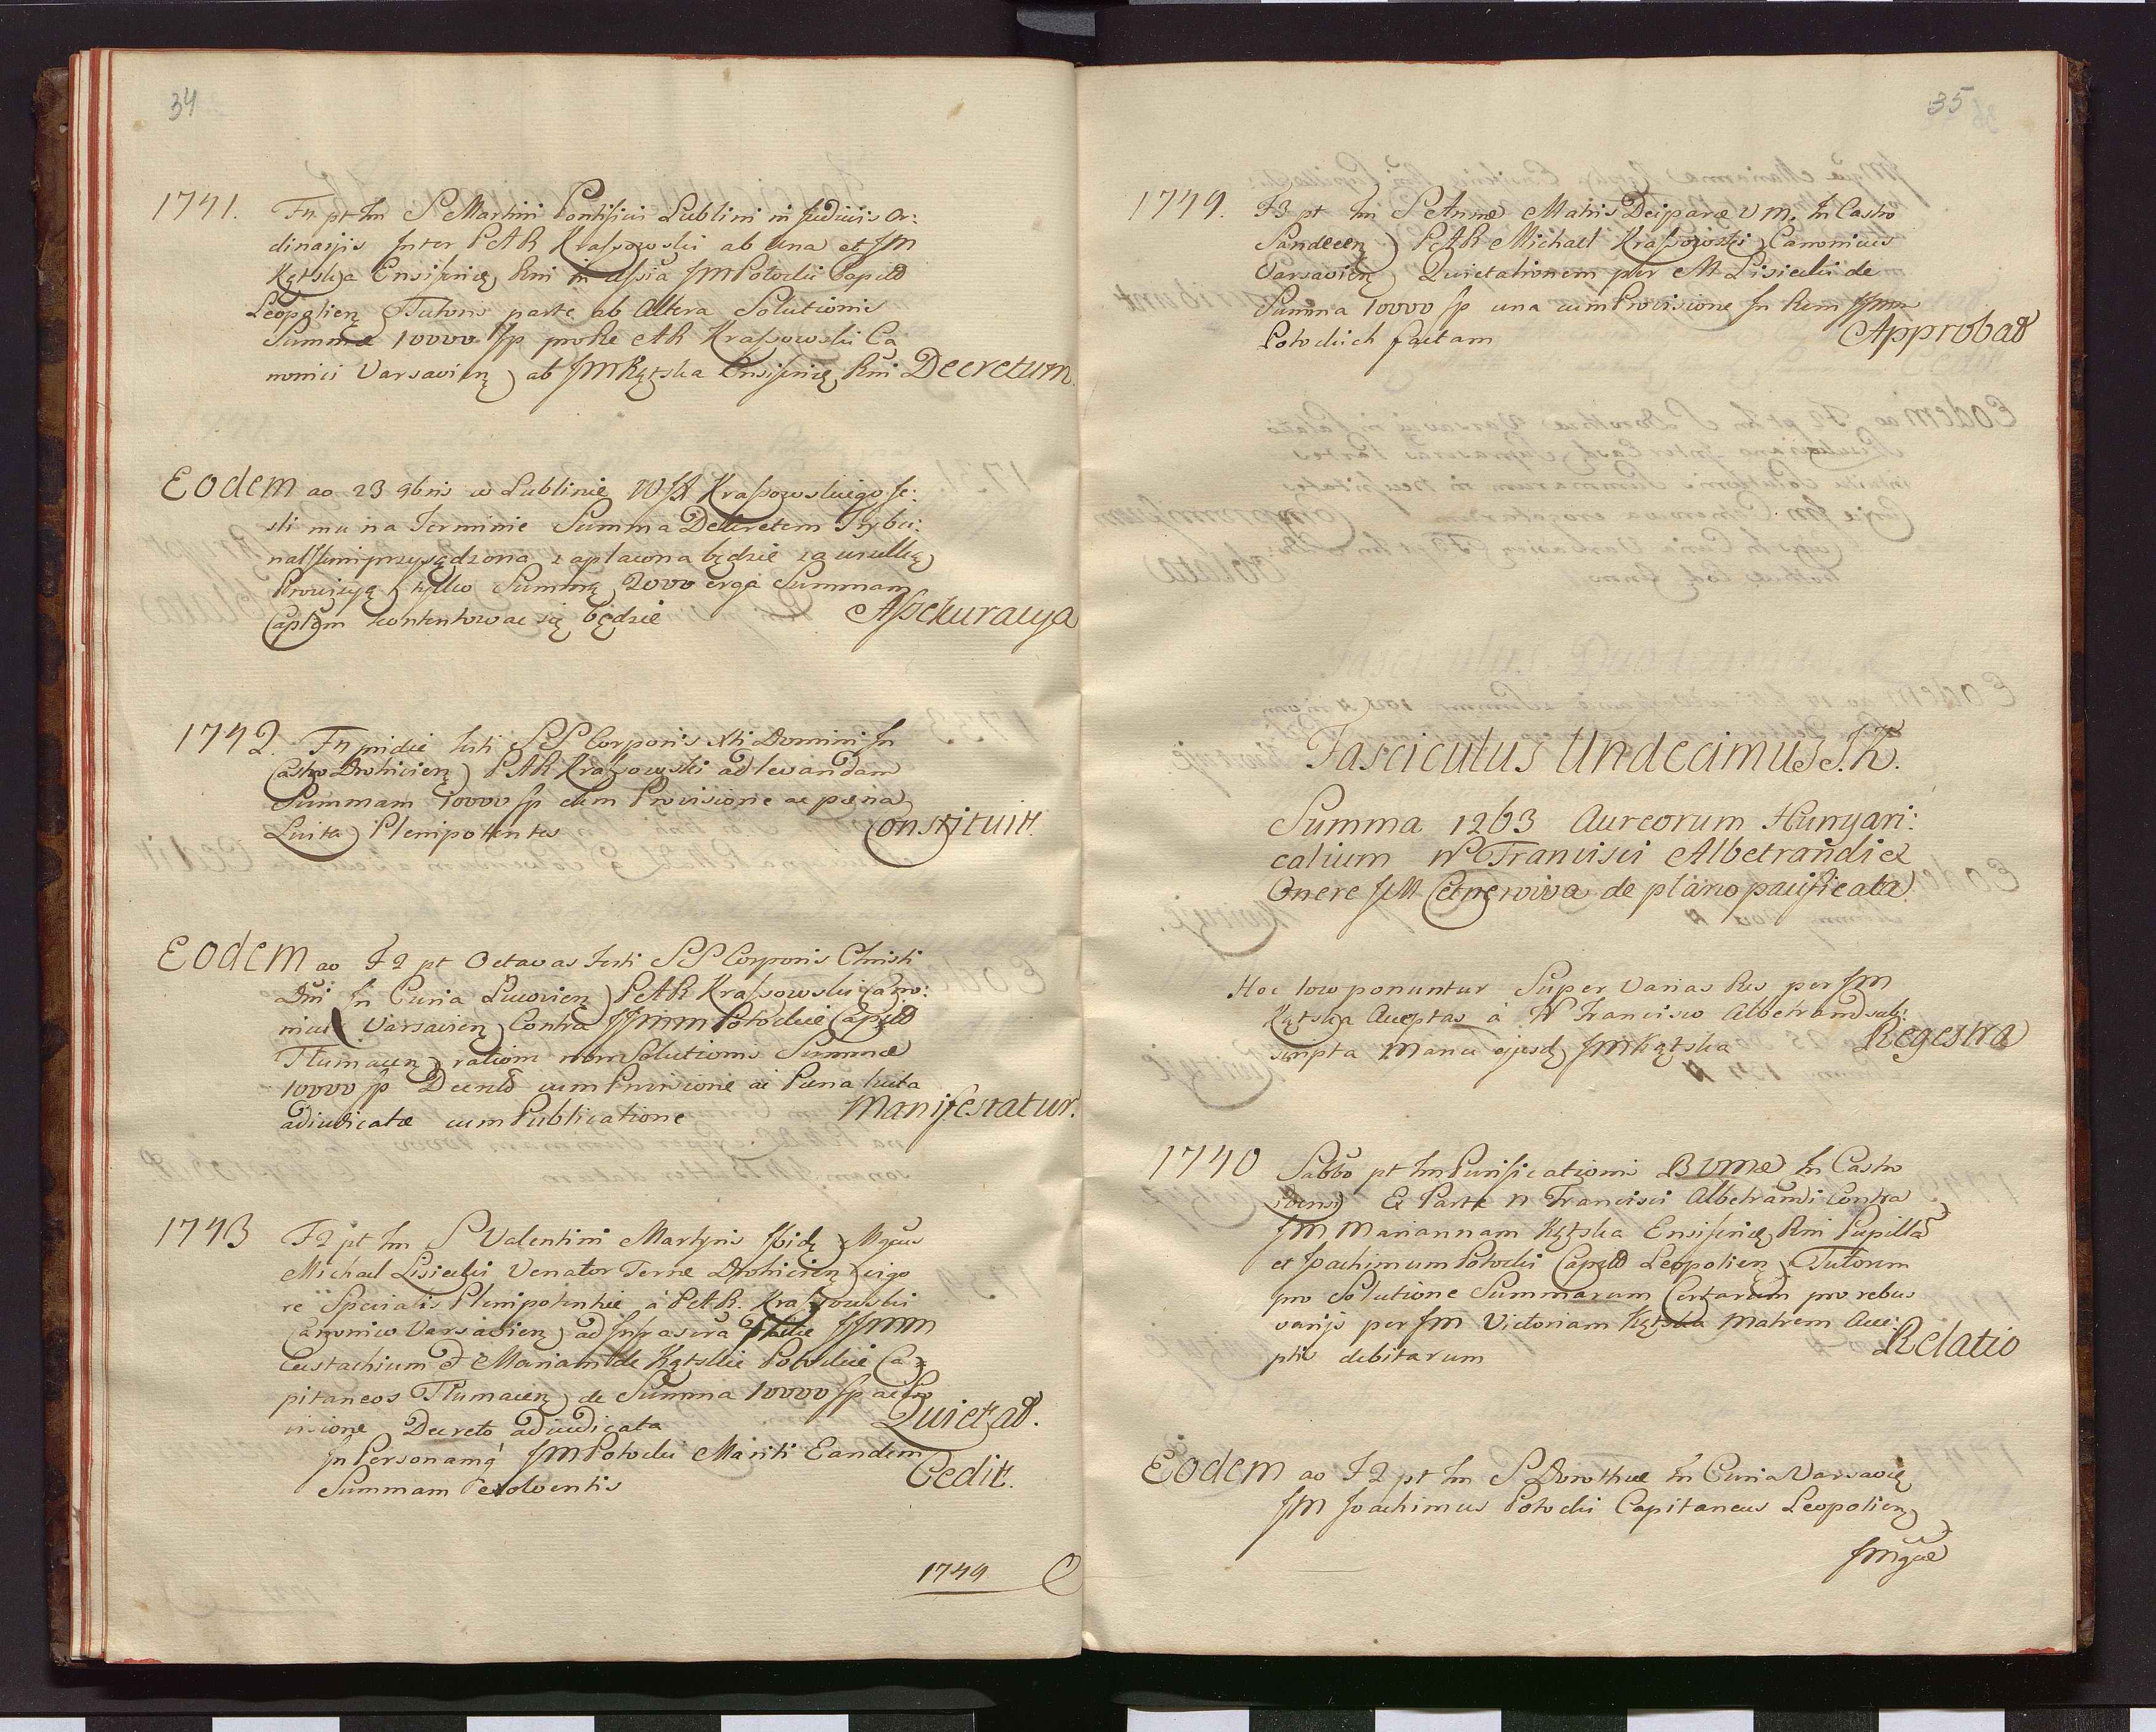 34
1741. F4 pt fm S Martini Pontificis Lublini in Judicijs Or:
dinarijs Inter PAR Krassowski ab una et JM
Kątska Ensiferię Rni in assia JM Potocki Capitd
Leopolien Tutoris parte ab Altera Solutionis
Summæ 10000 fp pro Re AR Krassowski Ca
nonici Varsavien ab JM Kątska Ensiferię Rni Decretum.
Eodem ao 23 9bris w Lublinie WJX Krassowskiego je:
sli mu na Terminie Summa Dekretem Trybu:
nalskim przysądzona zapłacona będzie za wszelką
Prowizyą tylko Summę 2000 erga Summam
Captem kontentować się będzie Assekuracya
1742. F4 pridie festi SS Corporis Xti Domini In
Castro Drohicien PAR Krassowski ad levandam
Summam 10000 fp cum Provisione ac pœna
Luita Plenipotentes Constituit.
Eodem ao F2 pt Octavas festi SS Corporis Christi
Dni In Curia Lucovien PAR Krassowski Cano:
nicus Varsavien Contra JJMM Potockie Capitd
Tłumacien ratione non Solutionis Summæ
10000 fp Decreto cum Provisione ac Pœna luita
adiudicatæ cum Publicatione Manifestatur.
1743 F2 pt fm S Valentini Martyris fpidę Mgcus
Michael Lisiecki Venator Terræ Drohicien vigo
re Specialis Plenipotentiæ a PAR. Krassowski
Canonico Varsavien ad Infrascra JJMM
Eustachium & Mariam de Kątskie Potockie Ca
pitaneos Tłumacien de Summa 10000 fp ac Pro
visione Decreto adiudicata Quietat.
In Personamq JM Potocki Mariti Eandem
Summam exolventis Cedit.
1744
35
1744. F3 pt fm S Annæ Matris Deiparæ V M. In Castro
Sandecen PAR Michael Krassowski Canonicus
Varsavien Quietationem per M Lisiecki de
Summa 10000 fp una cum Provisione In Rem JJMM
Potockich factam Approbat
Fasciculus Undecimus J.K.
Summa 1263 Aureorum Hungari:
calium No Francisci Albetrandi ex
Onere JM Cetnerowiva de plano pacificata.
Hoc loco ponuntur Super Varias Res per JM
Kątska Acceptas à N Francisco Albetrandi sub:
scripta Manu ejusd JM Kątska Regestra
1740 Sabbo pt fm Purificationis BVMæ In Castro
Ex Parte N Francisci Albetrandi Contra
JM Mariannam Kątska Ensiferię Rni Pupillã
et Joachimum Potocki Captd Leopolien Tutorem
pro Solutione Summarum Certarum pro rebus
varijs per JM Victoriam Kątska Matrem Acce:
ptis debitarum Relatio
Eodem ao F2 pt fm S Dorotheæ In Curia Varsavię
JM Joachimus Potocki Capitaneus Leopolien
JMgcæ